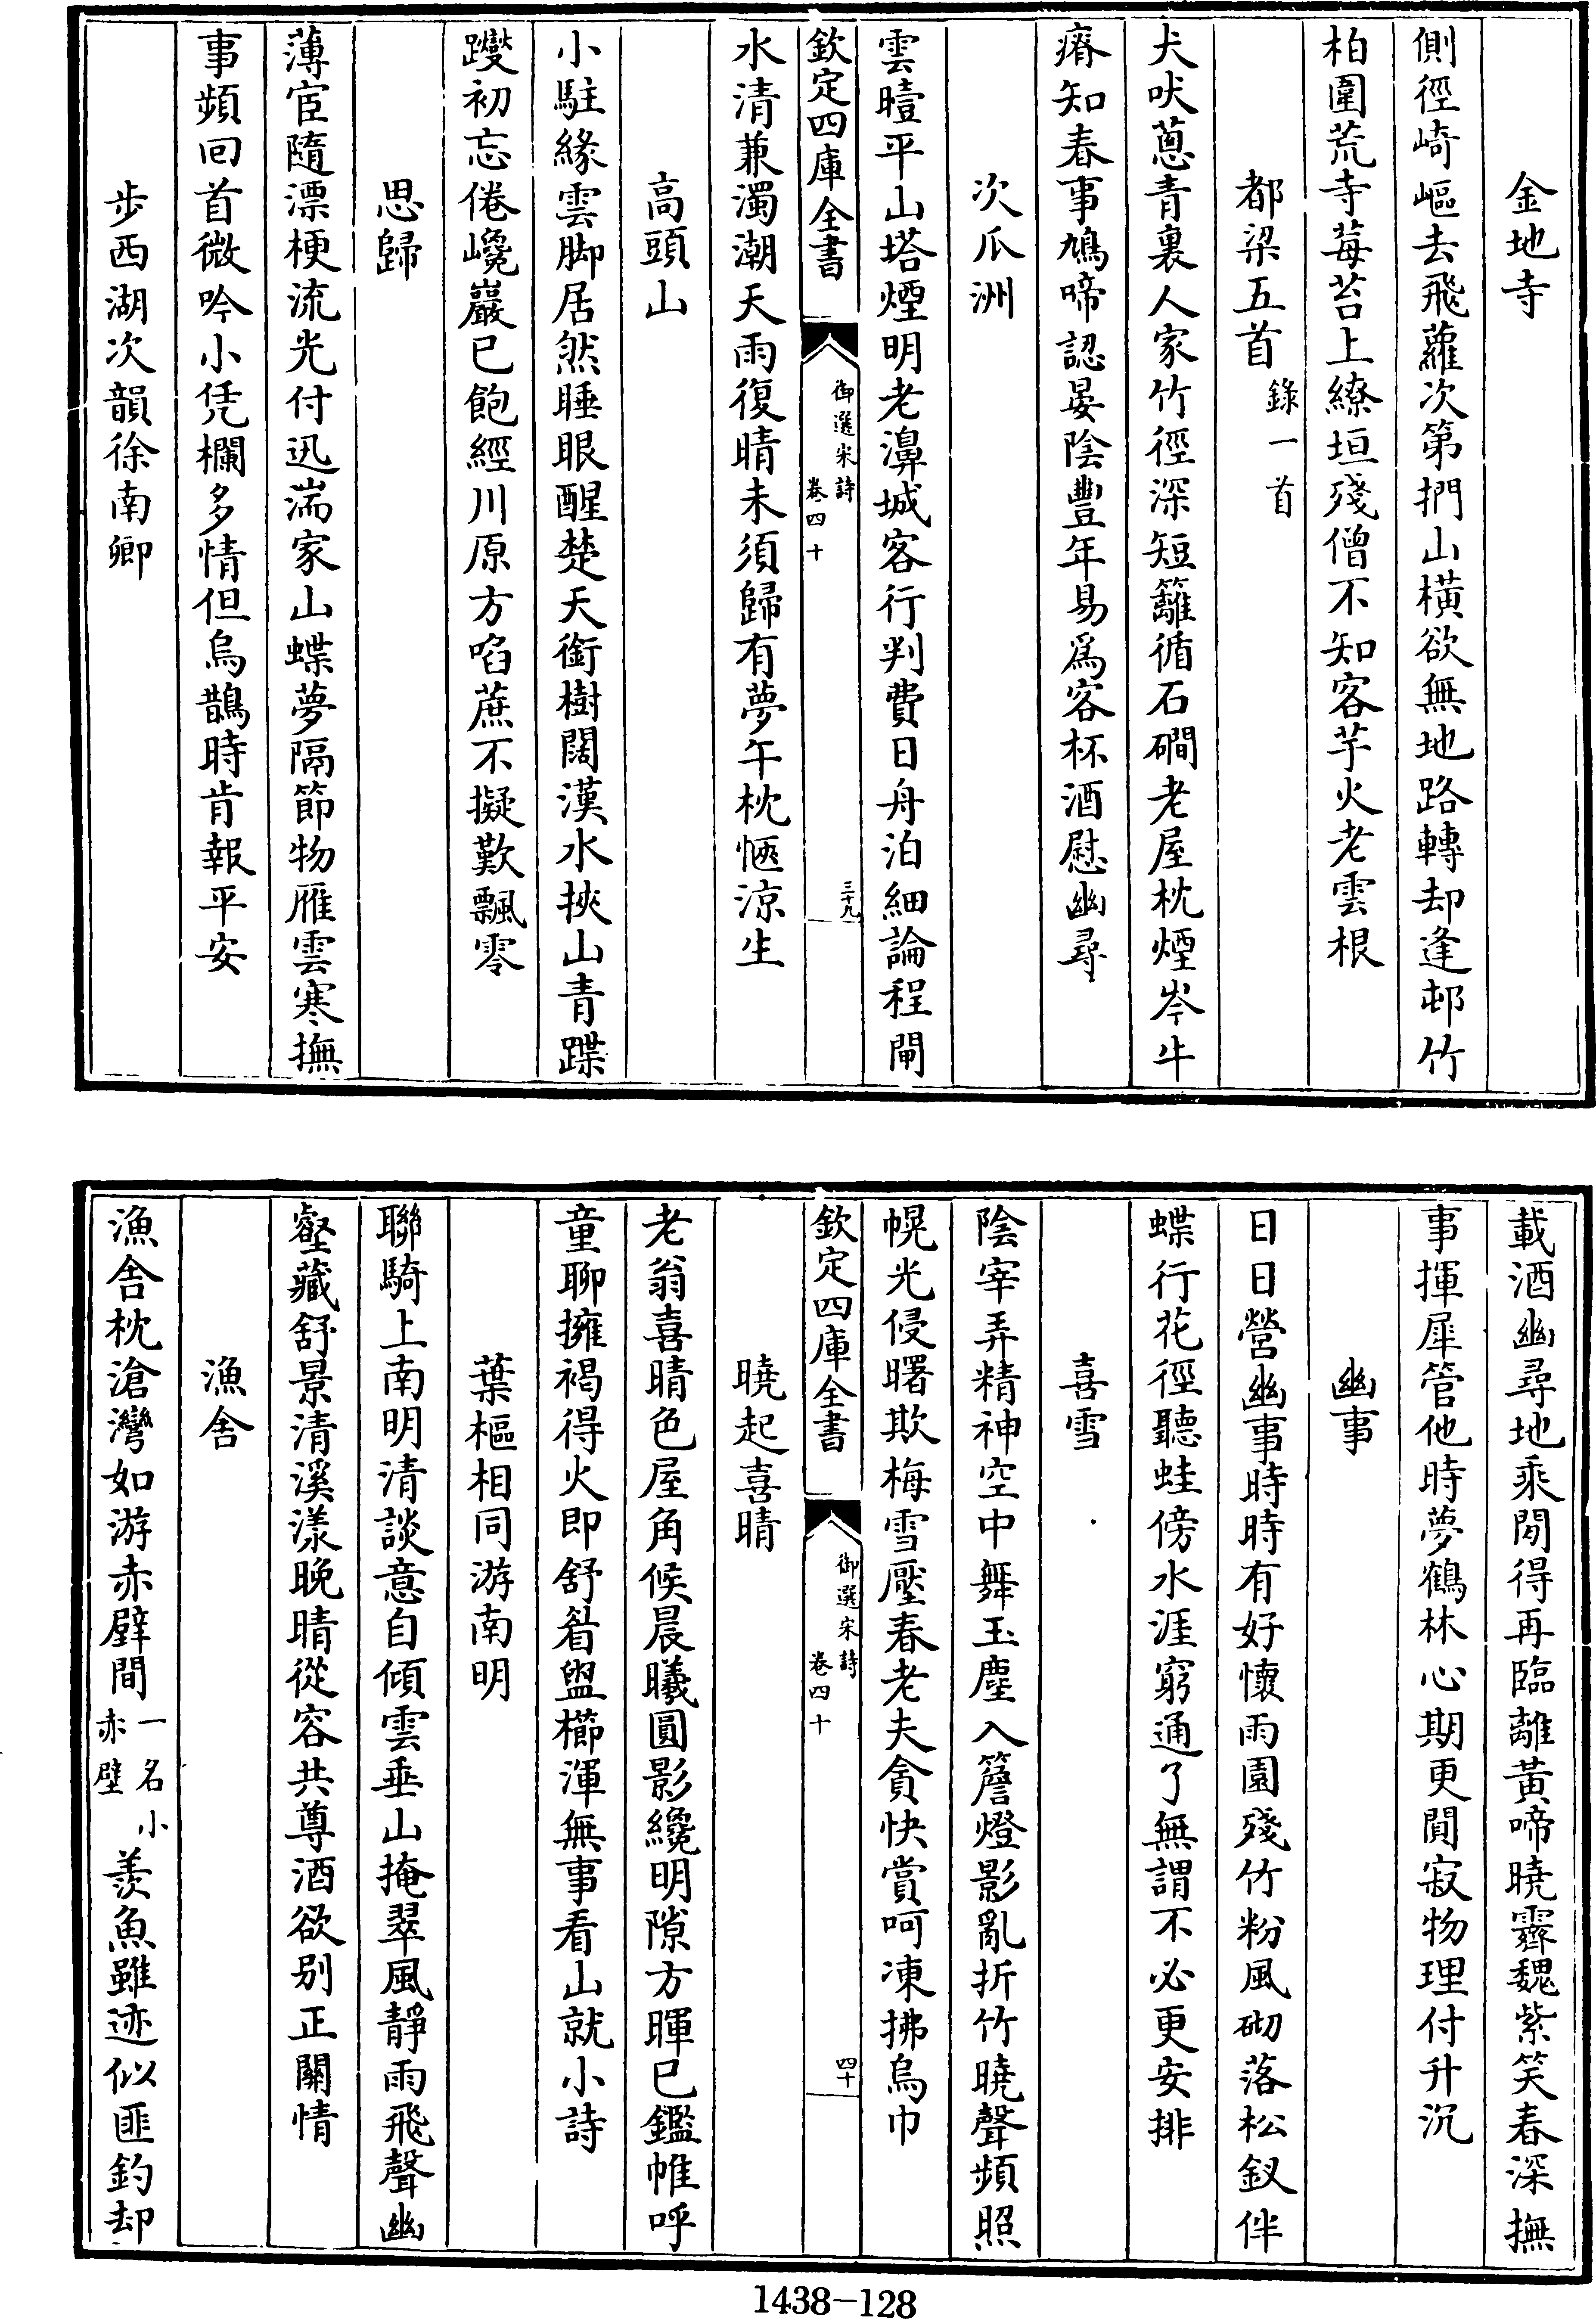 金地寺
側徑崎嶇去飛蘿次第捫山横欲無地路轉却逢邨竹
柏圍荒寺莓苔上繚垣殘僧不知客芋火老雲根
都梁五首錄一首
犬吠蔥青裏人家竹徑深短籬循石磵老屋枕煙岑牛
瘠知春事鳩啼認晏陰豐年易爲客杯酒慰幽尋
次瓜洲
雲曀平山塔煙明老濞城客行判費日舟泊細論程閘
欽定四庫全書
御選宋詩
卷四十
三十九
水清兼濁潮天雨復晴未須歸有夢午枕愜涼生
高頭山
小駐緣雲脚居然睡眼醒楚天銜樹闊漢水挾山青蹀
躞初忘倦巉巖已飽經川原方啗蔗不擬歎飄零
思歸
薄宦隨漂梗流光付迅湍家山蝶夢隔節物雁雲寒撫
事頻回首微吟小凭欄多情但烏鵲時肯報平安
步西湖次韻徐南卿
載酒幽尋地乘閒得再臨離黃啼曉霽魏紫笑春深撫
事揮犀管他時夢鶴林心期更閒寂物理付升沉
幽事
日日營幽事時時有好懷雨園殘竹粉風砌落松釵伴
蝶行花徑聽蛙傍水涯窮通了無謂不必更安排
喜雪
陰宰弄精神空中舞玉塵入簷燈影亂折竹曉聲頻照
幌光侵曙欺梅雪壓春老夫貪快賞呵凍拂烏巾
欽定四庫全書
御選宋詩
卷四十
四十
曉起喜晴
老翁喜晴色屋角候晨曦圓影纔明隙方暉已鑑帷呼
童聊擁褐得火即舒眉盥櫛渾無事看山就小詩
葉樞相同游南明
聯騎上南明清談意自傾雲垂山掩翠風靜雨飛聲幽
壑藏舒景清溪漾晚晴從容共尊酒欲别正關情
漁舍
漁舍枕滄灣如游赤壁間一名小赤壁羡魚雖迹似匪釣却
1438-128